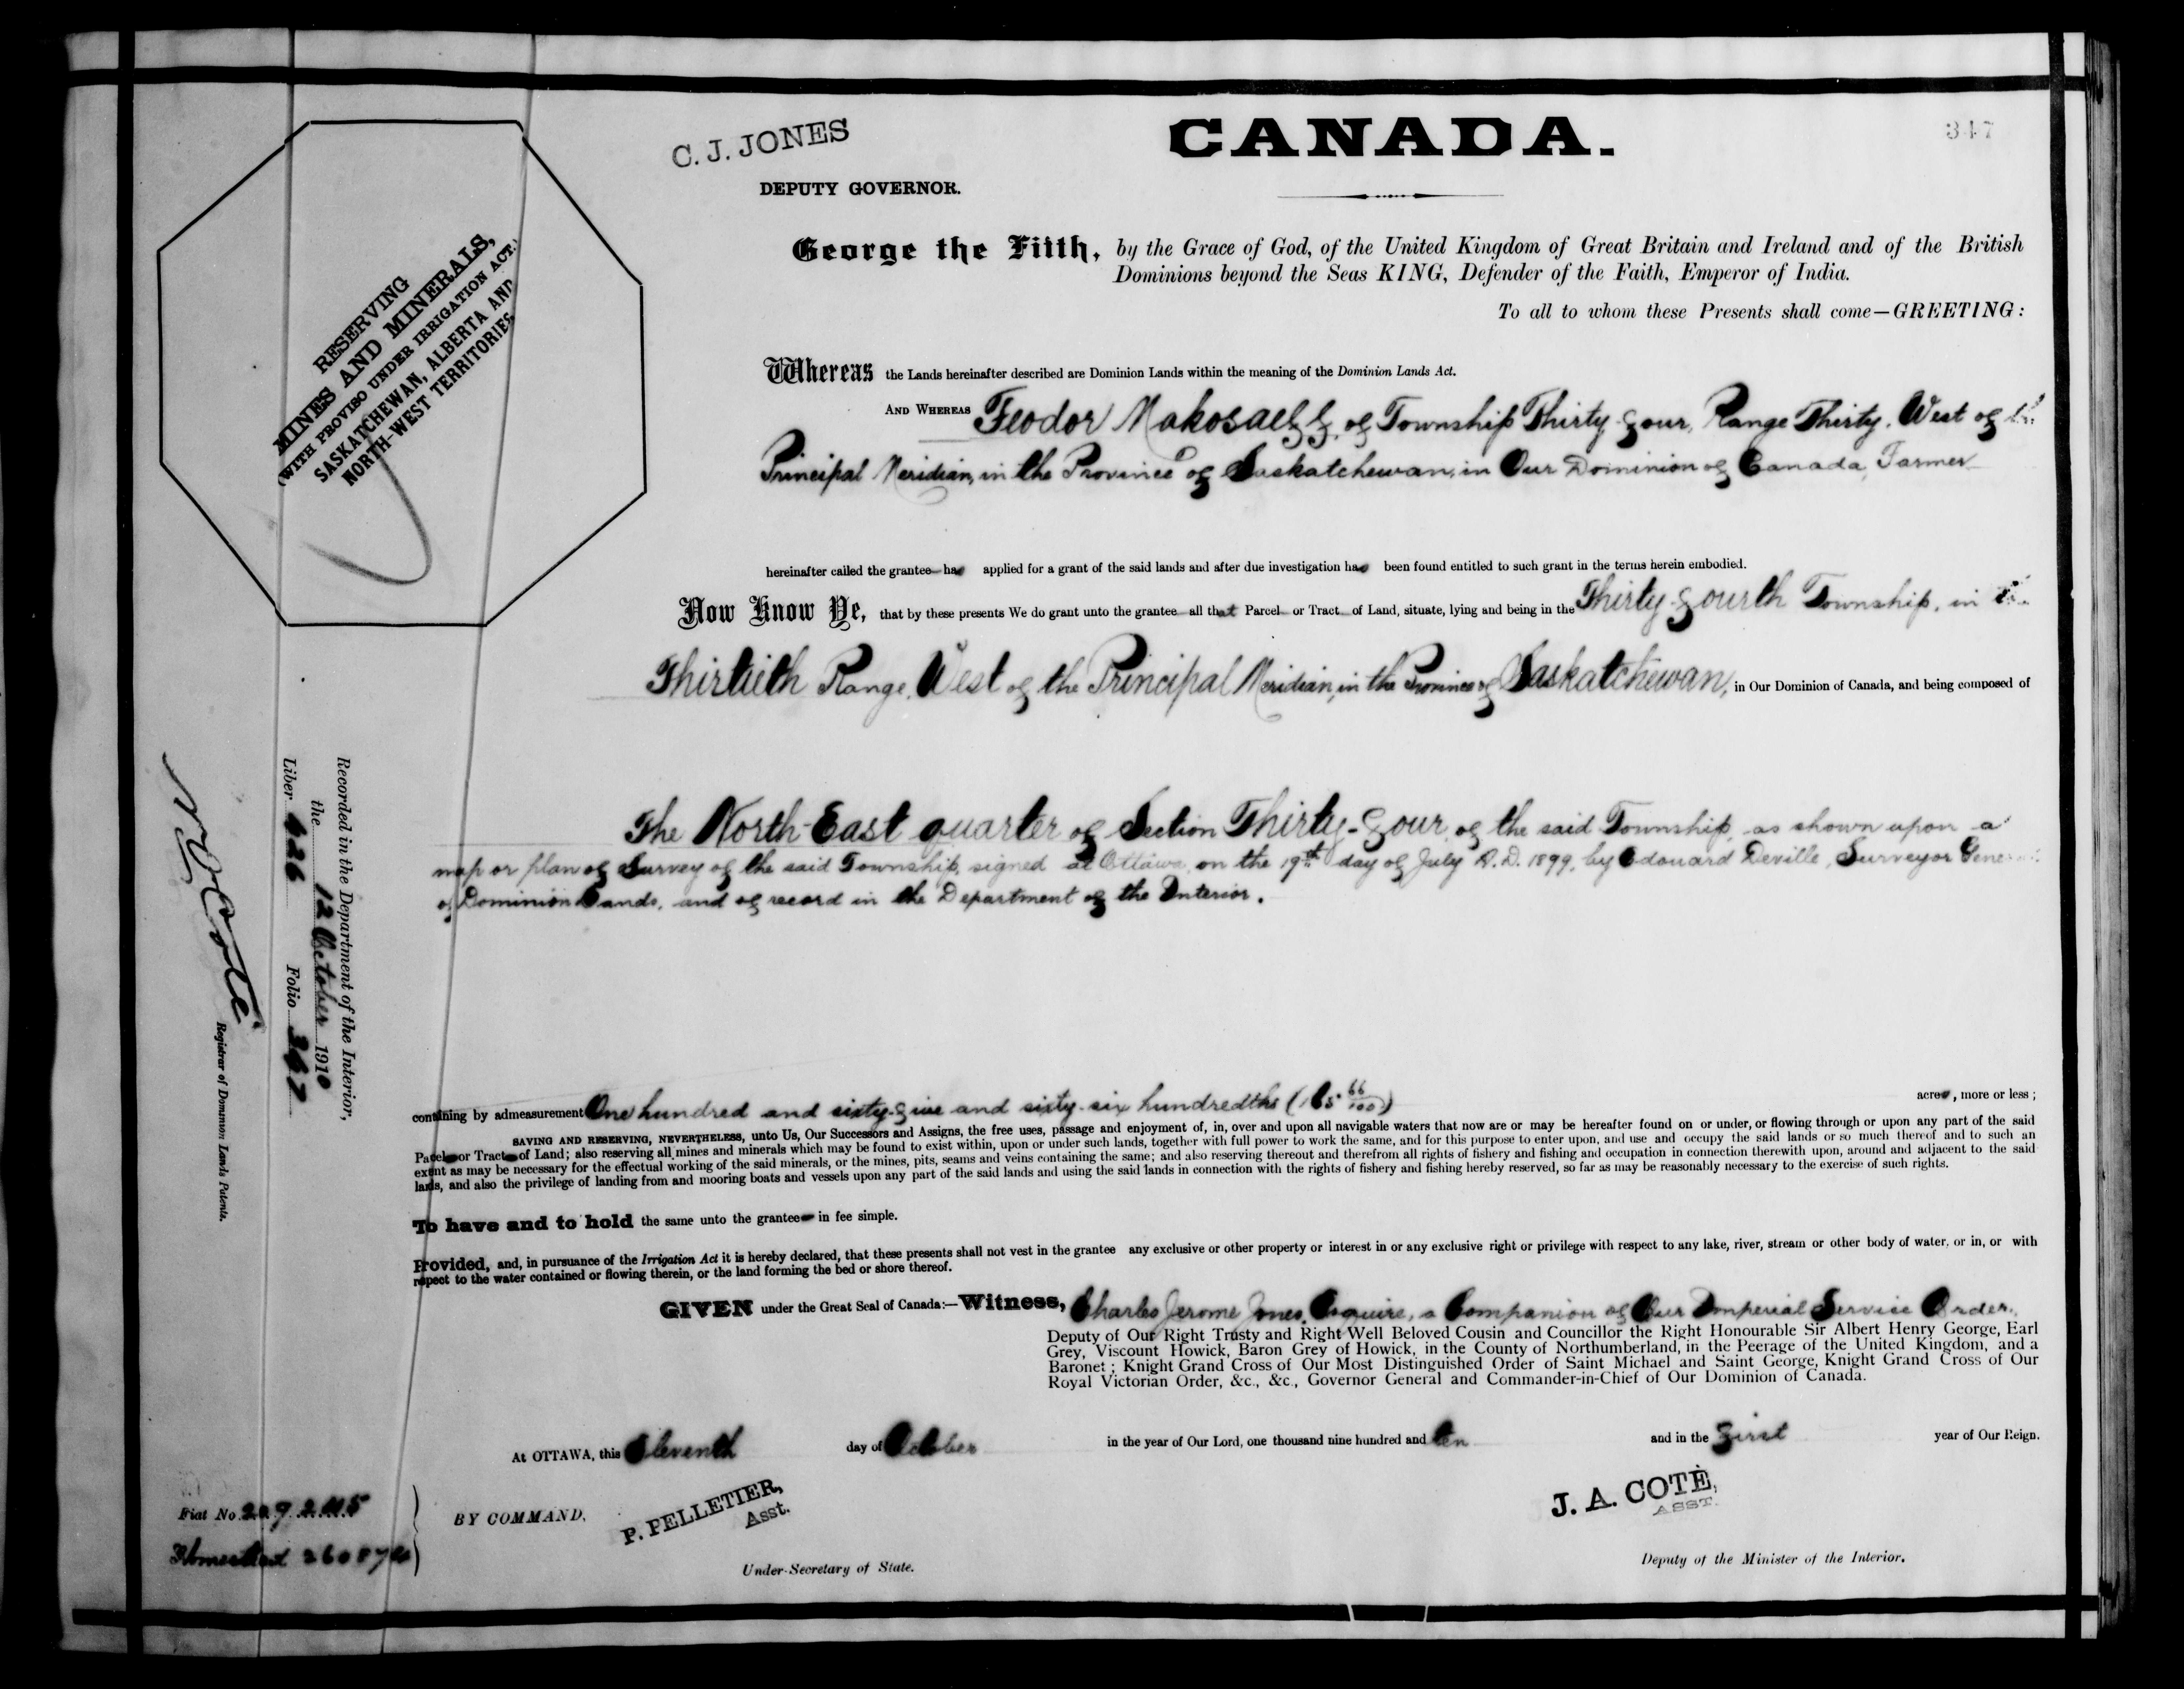 347
C. J. JONES
DEPUTY GOVERNOR.
CANADA.
RESERVING
MINES AND MINERALS,
(WITH PROVISO UNDER IRRIGATION ACT.)
SASKATCHEWAN, ALBERTA AND
NORTH-WEST TERRITORIES.
George the Fifth, by the Grace of God, of the United Kingdom of Great Britain and Ireland and of the British
Dominions beyond the Seas KING, Defender of the Faith, Emperor of India.
To all to whom these Presents shall come—GREETING:
Whereas the Lands hereinafter described are Dominion Lands within the meaning of the Dominion Lands Act.
AND WHEREAS Feodor Makosaeff, of Township Thirty-four, Range Thirty, West of the
Principal Meridian, in the Province of Saskatchewan, in Our Dominion of Canada, Farmer
hereinafter called the grantee has applied for a grant of the said lands and after due investigation has been found entitled to such grant in the terms herein embodied.
Now Know Ye, that by these presents We do grant unto the grantee all that Parcel or Tract of Land, situate, lying and being in the Thirty-fourth Township, in the
Thirtieth Range, West of the Principal Meridian, in the Province of Saskatchewan, in Our Dominion of Canada, and being composed of
The North-East quarter of Section Thirty-four, of the said Township, as shown upon a
map or plan of Survey of the said Township, signed at Ottawa, on the 19th day of July A.D. 1899, by Edouard Deville, Surveyor General
of Dominion Lands, and of record in the Department of the Interior.
containing by admeasurement One hundred and sixty-five and sixty-six hundredths (165 66/100) acres, more or less;
SAVING AND RESERVING, NEVERTHELESS, unto Us, Our Successors and Assigns, the free uses, passage and enjoyment of, in, over and upon all navigable waters that now are or may be hereafter found on or under, or flowing through or upon any part of the said
Parcel or Tract of Land; also reserving all mines and minerals which may be found to exist within, upon or under such lands, together with full power to work the same, and for this purpose to enter upon, and use and occupy the said lands or so much thereof and to such an
extent as may be necessary for the effectual working of the said minerals, or the mines, pits, seams and veins containing the same; and also reserving thereout and therefrom all rights of fishery and fishing and occupation in connection therewith upon, around and adjacent to the said
lands, and also the privilege of landing from and mooring boats and vessels upon any part of the said lands and using the said lands in connection with the rights of fishery and fishing hereby reserved, so far as may be reasonably necessary to the exercise of such rights.
To have and to hold the same unto the grantee in fee simple.
Provided, and, in pursuance of the Irrigation Act it is hereby declared, that these presents shall not vest in the grantee any exclusive or other property or interest in or any exclusive right or privilege with respect to any lake, river, stream or other body of water, or in, or with
respect to the water contained or flowing therein, or the land forming the bed or shore thereof.
GIVEN under the Great Seal of Canada:—Witness, Charles Jerome Jones, Esquire, a Companion of Our Imperial Service Order,
Deputy of Our Right Trusty and Right Well Beloved Cousin and Councillor the Right Honourable Sir Albert Henry George, Earl
Grey, Viscount Howick, Baron Grey of Howick, in the County of Northumberland, in the Peerage of the United Kingdom, and a
Baronet; Knight Grand Cross of Our Most Distinguished Order of Saint Michael and Saint George, Knight Grand Cross of Our
Royal Victorian Order, &c., &c., Governor General and Commander-in-Chief of Our Dominion of Canada.
At OTTAWA, this Eleventh day of October in the year of Our Lord, one thousand nine hundred and ten and in the first year of Our Reign.
BY COMMAND,
P. PELLETIER,
Asst.
Under-Secretary of State.
J. A. COTÉ,
ASST.
Deputy of the Minister of the Interior.
Recorded in the Department of the Interior,
the 12 October 1910
Liber 626 Folio 347
N. O. Coté
Registrar of Dominion Lands Patents.
Fiat No.
Homestead